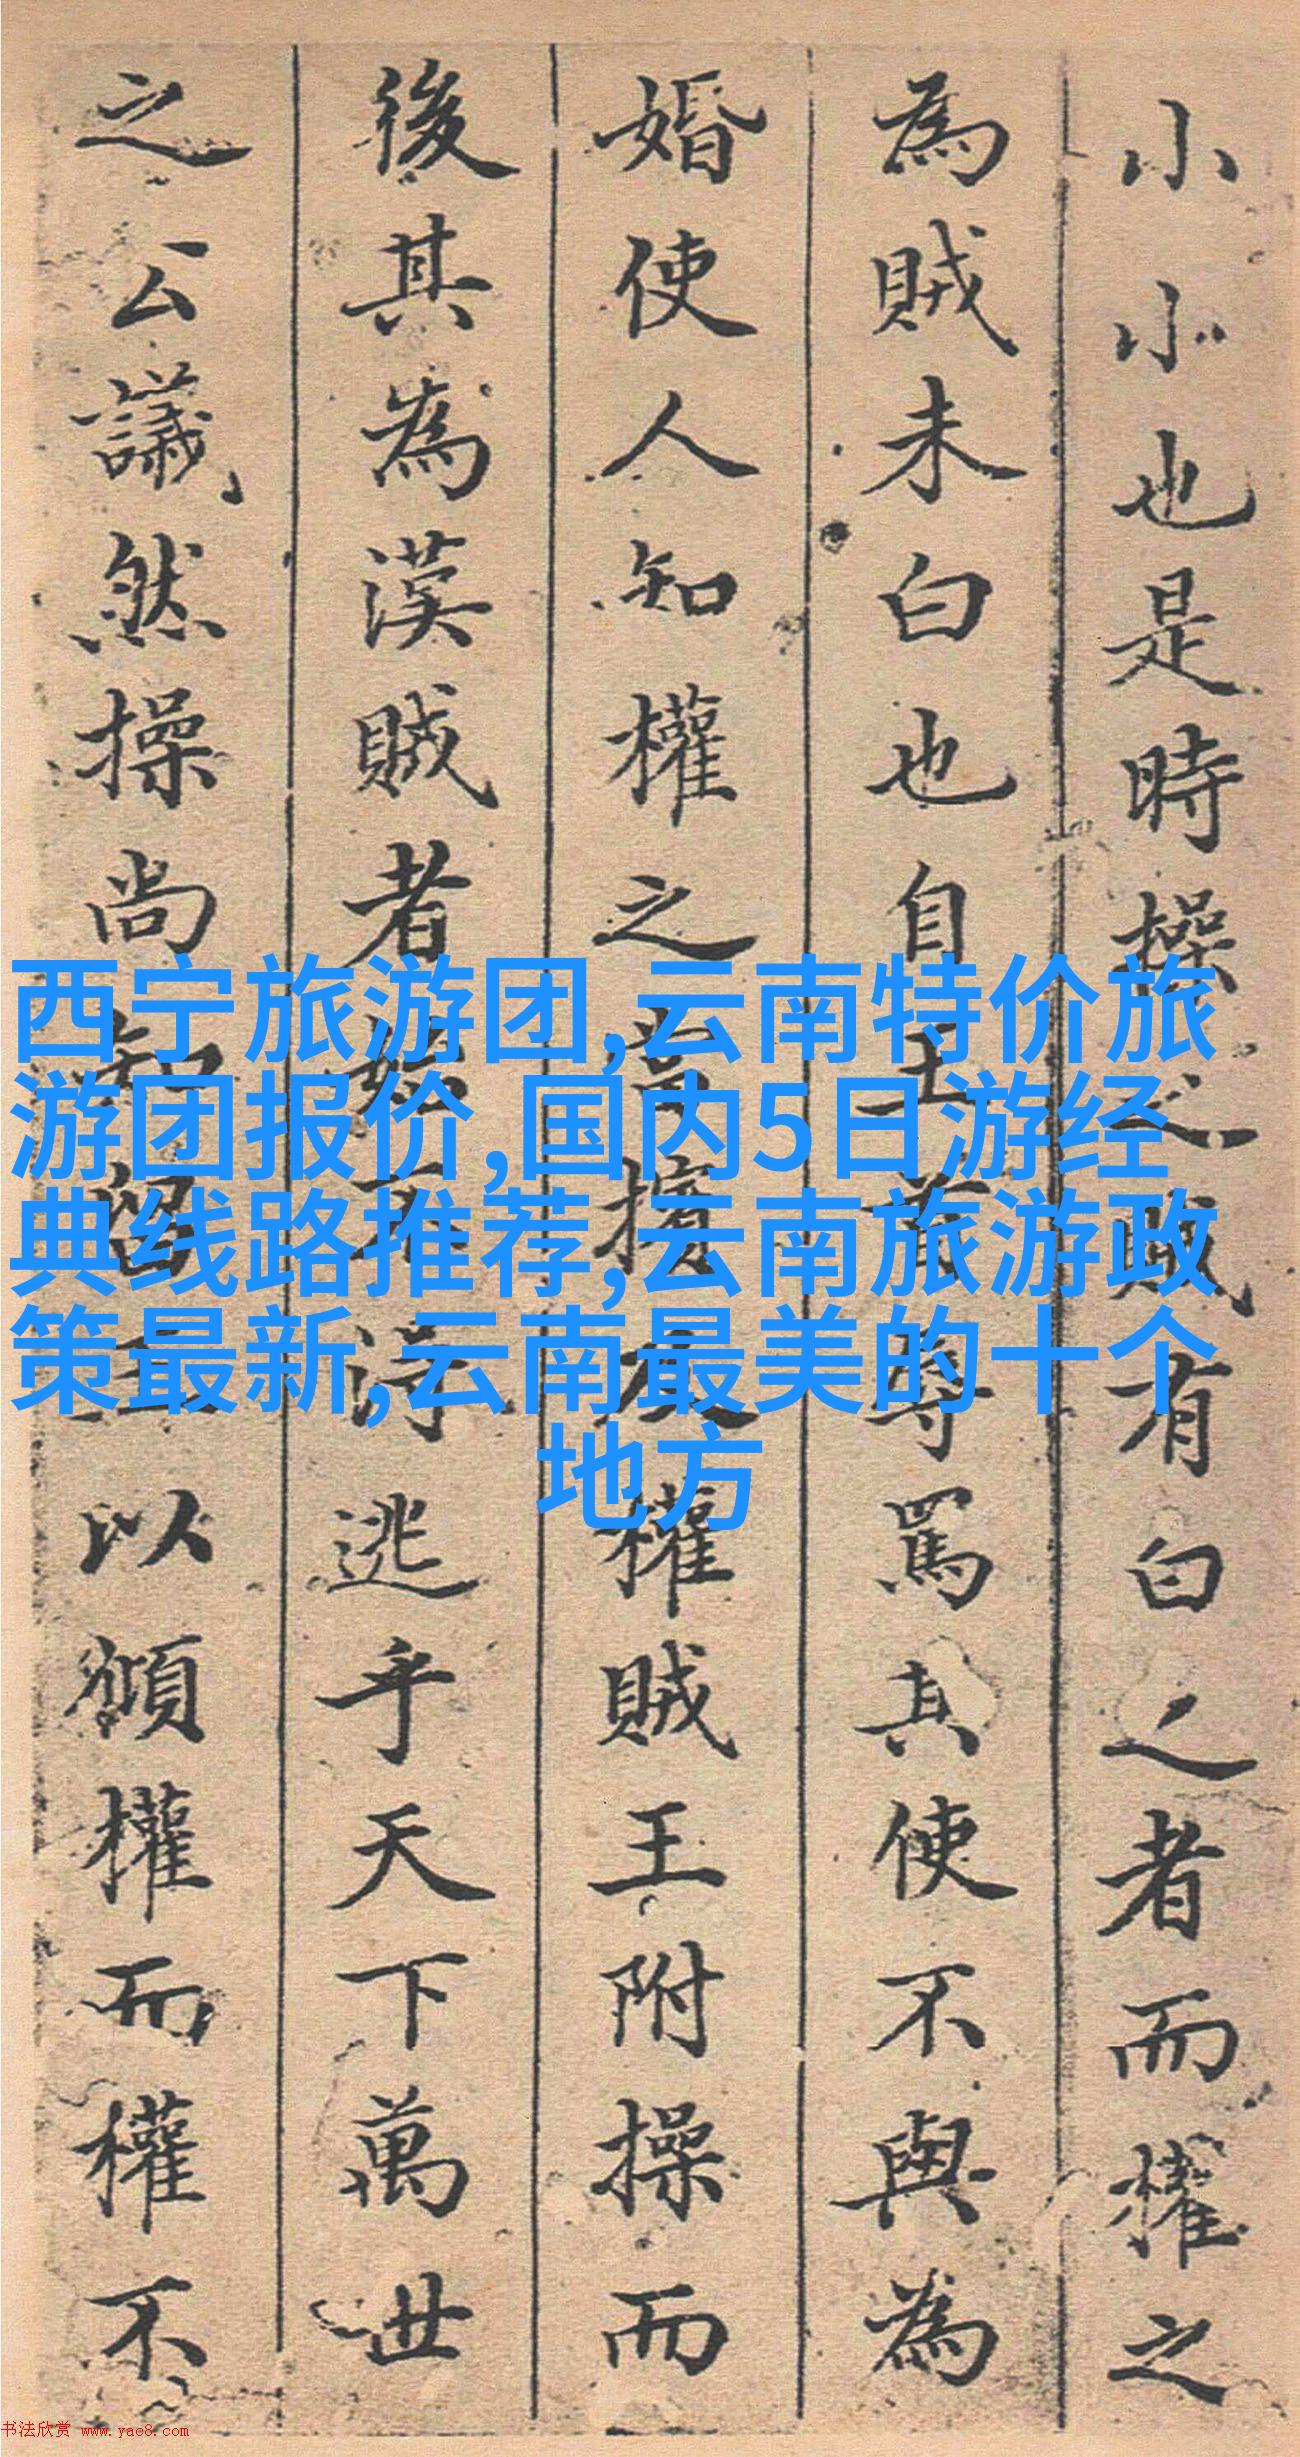 小小也是時操之賊有白之者而權之
為賊未白也自王罵其使不與為
婚使人知權之當擯權賊王附操而
後其為漢賊者始不得逃乎天下萬世
之公議然操尚知留王以權而權不
西宁旅游团,云南特价旅
游团报价,国内5日游经
典线路推荐,云南旅游政
策最新,云南最美的十个
地方
书法欣赏 www.yac8.com